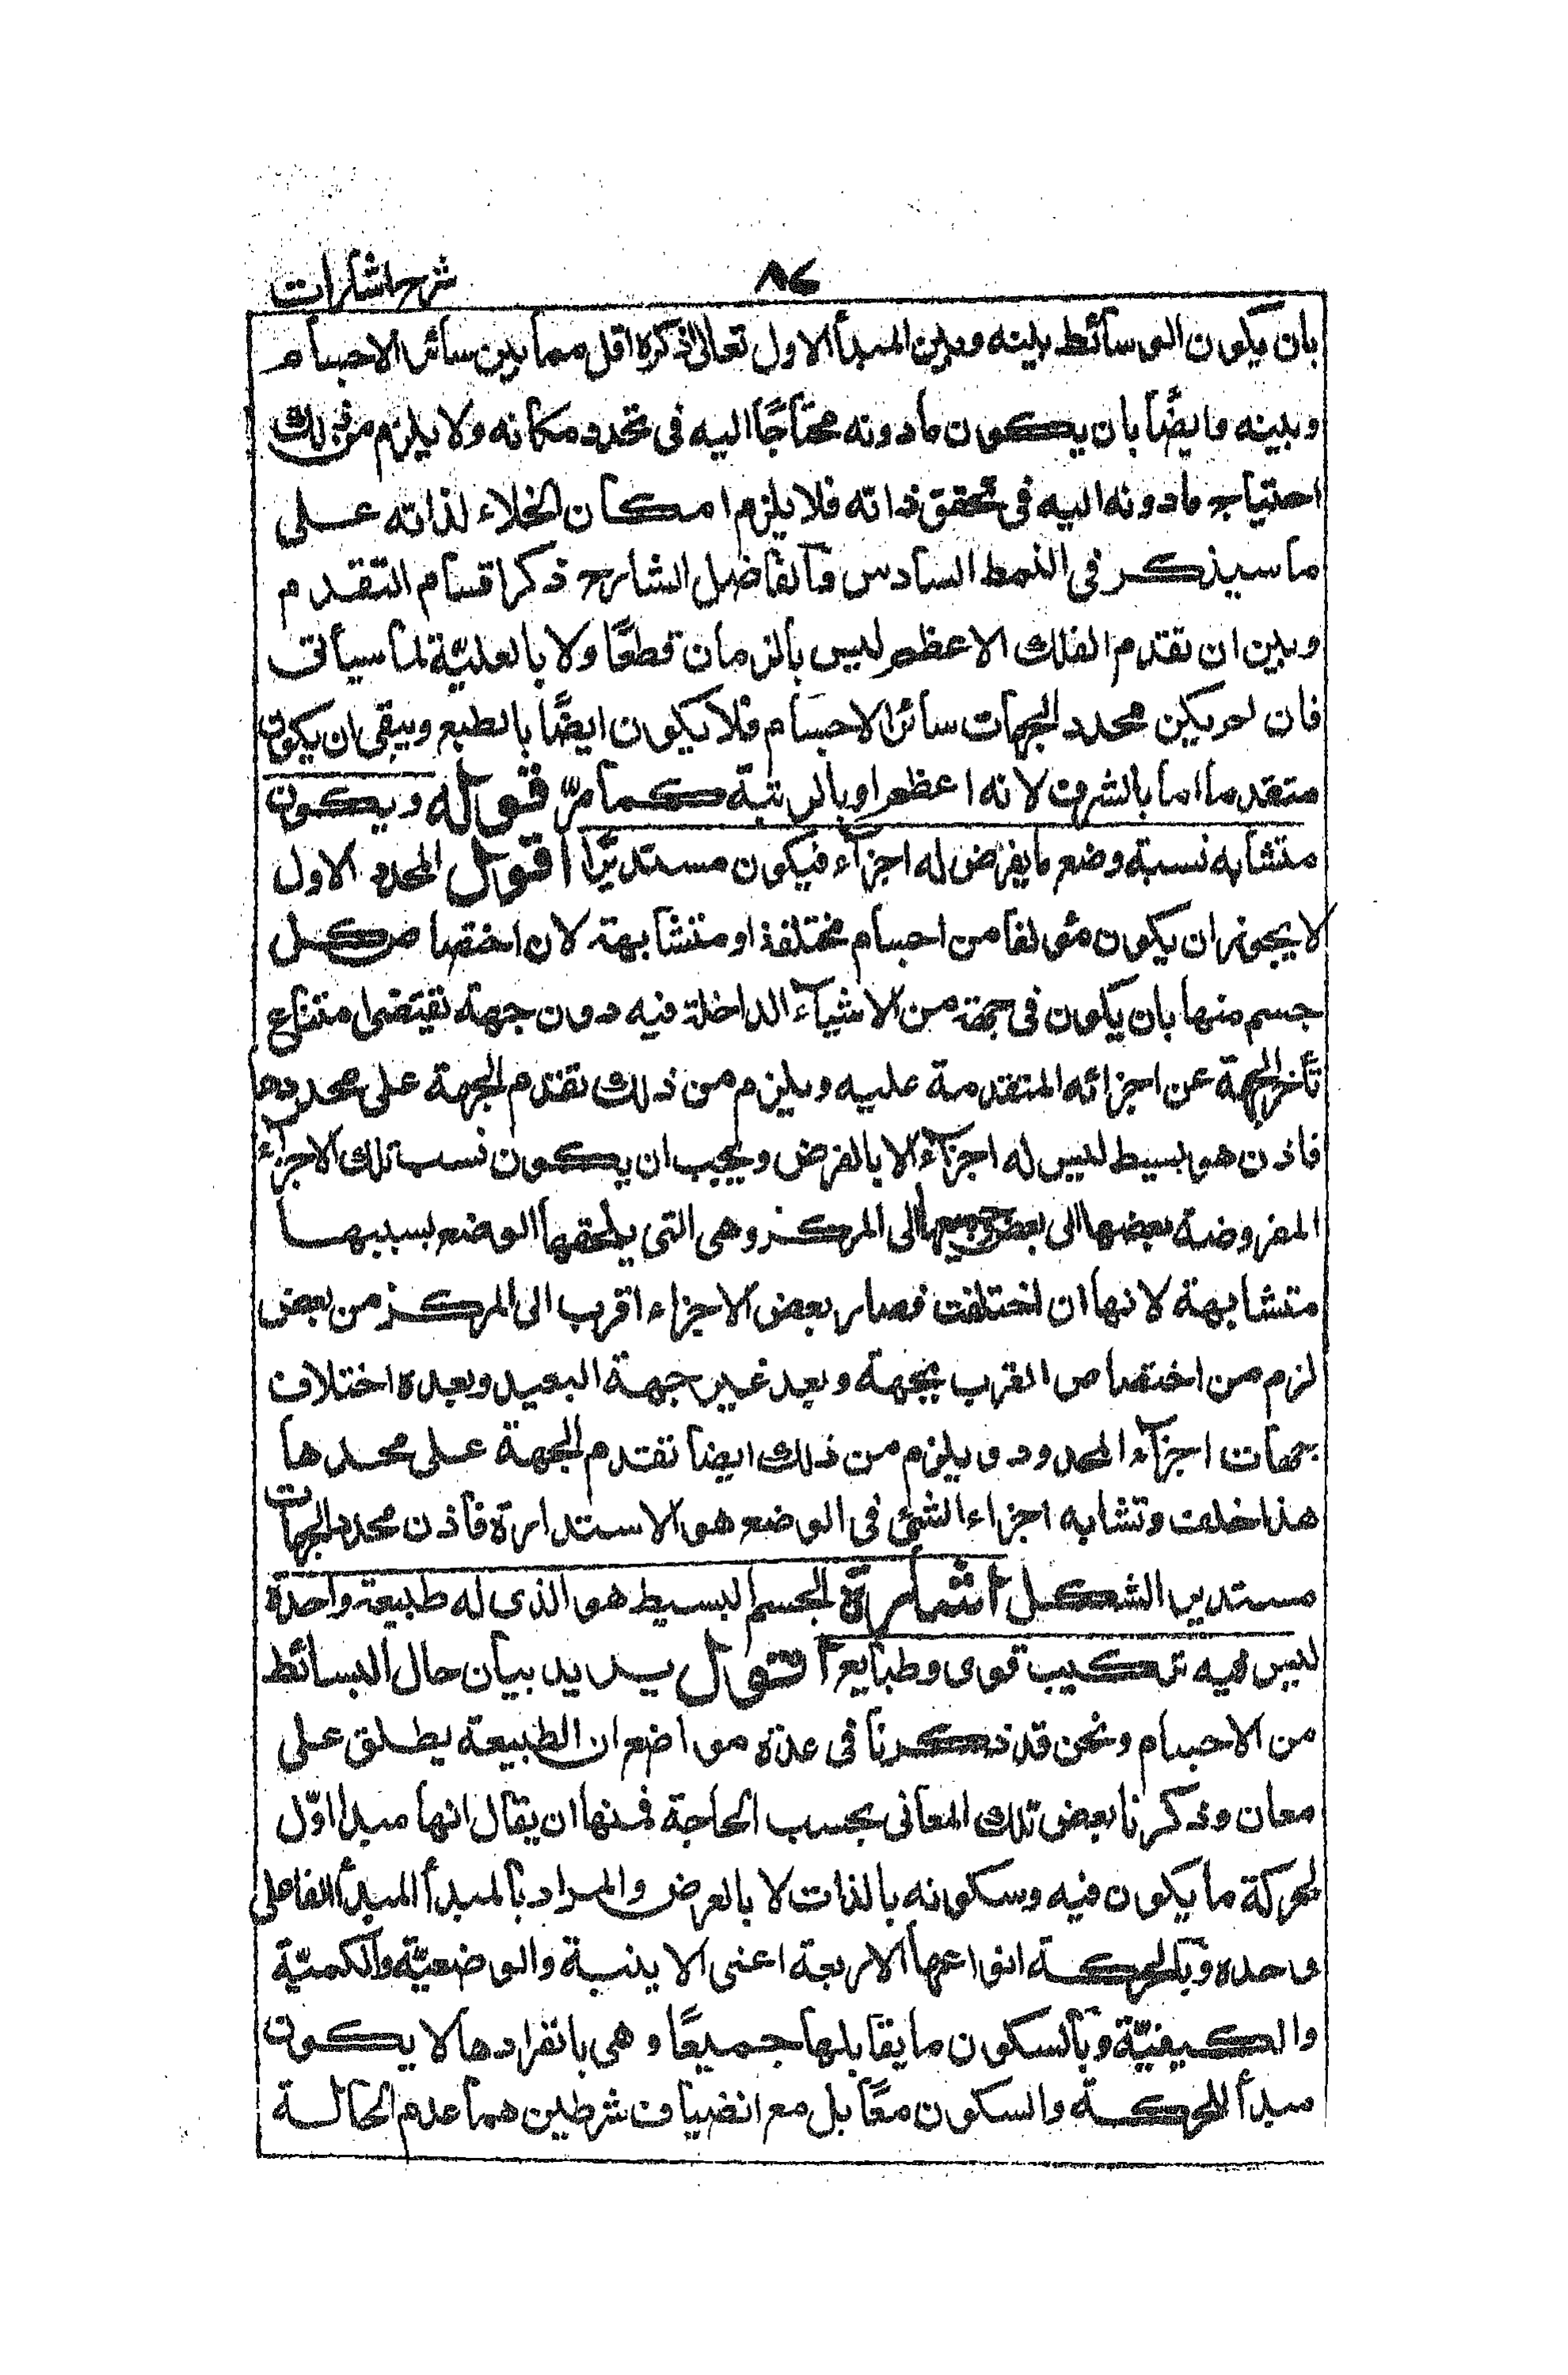 شرح اشارات
٨٤
بان يكون الوسائط بينه وبين المبدأ الاول تعالى ذكره اقل مما بين سائر الاجسام
وبينه وايضًا بان يكون مادونه محتاجًا اليه فى تحدد مكانه ولا يلزم من ذلك
احتياج مادونه اليه فى تحقق ذاته فلا يلزم امكان الخلاء لذاته على
ما سيذكر فى النمط السادس والفاضل الشارح ذكر اقسام التقدم
وبين ان تقدم الفلك الاعظم ليس بالزمان قطعًا ولا بالعليّة لما سيأتى
فان لم يكن محدد الجهات سائر الاجسام فلا يكون ايضًا بالطبع ويبقى ان يكون
متقدما اما بالشرف لانه اعظم او بالرتبة كما مرّ قوله ويكون
متشابه نسبة وضع ما يفرض له اجزآء فيكون مستديرًا اقول المحدد الاول
لا يجوز ان يكون مؤلفا من اجسام مختلفة او متشابهة لان اختصاص كل
جسم منها بان يكون فى جهة من الاشيآء الداخلة فيه دون جهة تقتضى امتناع
تأخر الجهة عن اجزائه المتقدمة عليه ويلزم من ذلك تقدم الجهة على محددها
فاذن هو بسيط ليس له اجزآء الا بالفرض ويجب ان يكون نسب تلك الاجزآء
المفروضة بعضها الى بعض وجميعها الى المركز وهى التى يلحقها الوضع بسببها
متشابهة لانها ان اختلفت فصار بعض الاجزاء اقرب الى المركز من بعض
لزم من اختصاص القرب بجهة وبعد غير جهة البعيد وبعده اختلاف
جهات اجزآء المحدود ويلزم من ذلك ايضا تقدم الجهة على محددها
هذا خلف وتشابه اجزاء الشئ فى الوضع هو الاستدارة فاذن محدد الجهات
مستدير الشكل اشارة الجسم البسيط هو الذى له طبيعة واحدة
ليس فيه تركيب قوى وطبايع اقول يريد بيان حال البسائط
من الاجسام ونحن قد ذكرنا فى عدة مواضع ان الطبيعة يطلق على
معان وذكرنا بعض تلك المعانى بحسب الحاجة فمنها ان يقال انها مبدأ اوّل
لحركة ما يكون فيه وسكونه بالذات لا بالعرض والمراد بالمبدأ المبدأ الفاعلى
وحده وبالحركة انواعها الاربعة اعنى الاينية والوضعيّة والكميّة
والكيفيّة وبالسكون ما يقابلها جميعًا وهى بانفرادها لا يكون
مبدأ للحركة والسكون معًا بل مع انضياف شرطين هما عدم الحالة